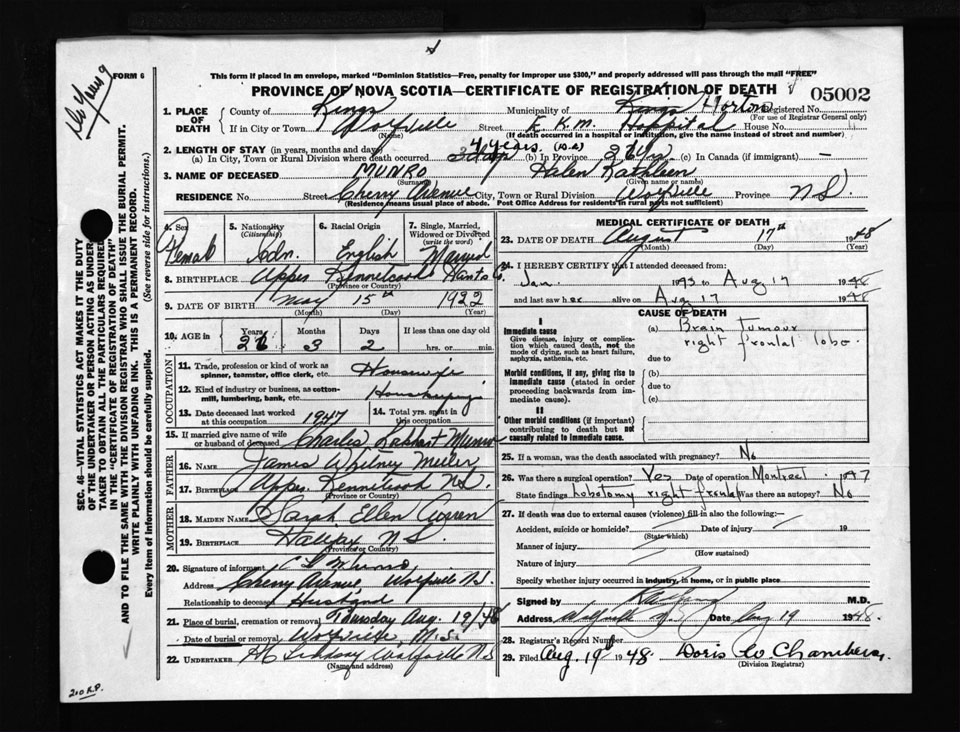 FORM 6
This form if placed in an envelope, marked "Dominion Statistics—Free, penalty for improper use $300," and properly addressed will pass through the mail "FREE"
PROVINCE OF NOVA SCOTIA—CERTIFICATE OF REGISTRATION OF DEATH
05002
1. PLACE OF DEATH County of Kings Municipality of Kings Horton Registered No.
(For use of Registrar General only)
If in City or Town Wolfville Street E. K. M. Hospital House No.
(Name) (If death occurred in a hospital or institution, give the name instead of street and number)
2. LENGTH OF STAY (in years, months and days) 4 years.
(a) In City, Town or Rural Division where death occurred (b) In Province 26 yrs (c) In Canada (if immigrant) —
3. NAME OF DECEASED MUNRO Helen Kathleen
(Surname) (Given name or names)
RESIDENCE No. Street Cherry Avenue City, Town or Rural Division Wolfville Province N.S.
(Residence means usual place of abode. Post Office Address for residents in rural parts not sufficient)
4. Sex
Female
5. Nationality
(Citizenship)
Cdn.
6. Racial Origin
English
7. Single, Married, Widowed or Divorced
(write the word)
Married
8. BIRTHPLACE Upper Kennetcook Hants Co.
(Province or Country)
9. DATE OF BIRTH May 15th 1922
(Month) (Day) (Year)
10. AGE in Years Months Days If less than one day old
26 3 2 hrs. or min.
OCCUPATION
11. Trade, profession or kind of work as spinner, teamster, office clerk, etc. Housewife
12. Kind of industry or business, as cotton-mill, lumbering, bank, etc. Housekeeping
13. Date deceased last worked at this occupation 1947
14. Total yrs. spent in this occupation
15. If married give name of wife or husband of deceased Charles Munro
FATHER
16. NAME James Whitney
17. BIRTHPLACE Upper Kennetcook N.S.
(Province or Country)
MOTHER
18. MAIDEN NAME Sarah Ellen
19. BIRTHPLACE Halifax N.S.
(Province or Country)
20. Signature of informant C L Munro
Address Cherry Avenue, Wolfville N.S.
Relationship to deceased Husband
21. Place of burial, cremation or removal Thursday Aug. 19/48
Date of burial or removal Wolfville N.S.
22. UNDERTAKER Lindsay Wolfville N.S
(Name and address)
MEDICAL CERTIFICATE OF DEATH
23. DATE OF DEATH August 17th 1948
(Month) (Day) (Year)
24. I HEREBY CERTIFY that I attended deceased from:
Jan. to Aug 17 1948
and last saw her alive on Aug 17 1948
CAUSE OF DEATH
I
Immediate cause
Give disease, injury or complication which caused death, not the mode of dying, such as heart failure, asphyxia, asthenia, etc.
(a) Brain tumour
right frontal lobe.
due to
Morbid conditions, if any, giving rise to immediate cause (stated in order proceeding backwards from immediate cause).
(b)
due to
(c)
II
Other morbid conditions (if important) contributing to death but not causally related to immediate cause.
25. If a woman, was the death associated with pregnancy? No
26. Was there a surgical operation? Yes Date of operation Montreal 1947
State findings lobotomy right frontal Was there an autopsy? No
27. If death was due to external causes (violence) fill in also the following:—
Accident, suicide or homicide? Date of injury 19
(State which)
Manner of injury
(How sustained)
Nature of injury
Specify whether injury occurred in industry, in home, or in public place
Signed by M.D.
Address Wolfville N.S. Date Aug 19 1948
28. Registrar's Record Number
29. Filed Aug. 19th 1948. Doris W Chambers,
(Division Registrar)
SEC. 46—VITAL STATISTICS ACT MAKES IT THE DUTY
OF THE UNDERTAKER OR PERSON ACTING AS UNDERTAKER TO OBTAIN ALL THE PARTICULARS REQUIRED
IN THE "CERTIFICATE OF REGISTRATION OF DEATH"
AND TO FILE THE SAME WITH THE DIVISION REGISTRAR WHO SHALL ISSUE THE BURIAL PERMIT.
WRITE PLAINLY WITH UNFADING INK. THIS IS A PERMANENT RECORD.
Every item of information should be carefully supplied. (See reverse side for instructions.)
210 R.P.